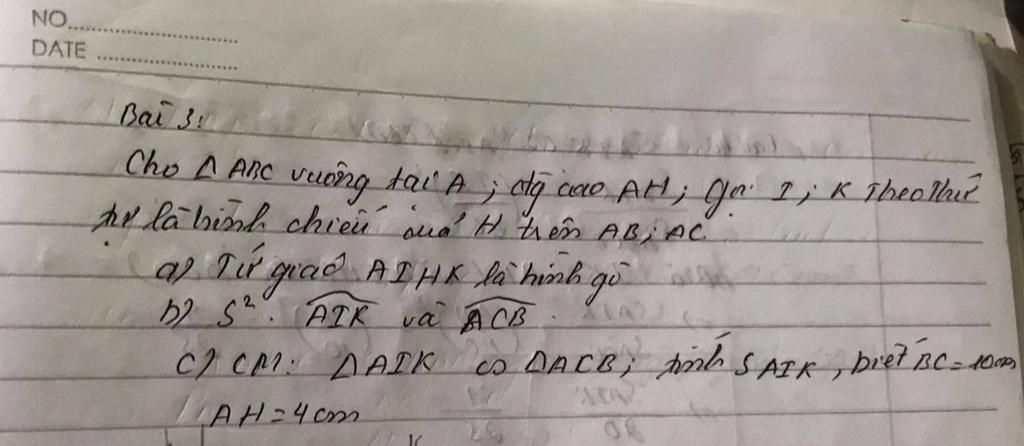 NO
DATE
Bài 3:
Cho Δ ABC vuông tại A ; đg cao AH ; gọi I ; K Theo Thứ
tự là hình chiếu của H trên AB ; AC
a) Tứ giác AIHK là hình gì
b) S². \widehat{AIK} và \widehat{ACB}.
c) CM: ΔAIK ∽ ΔACB ; tính S AIK , biết BC = 10cm
AH = 4 cm